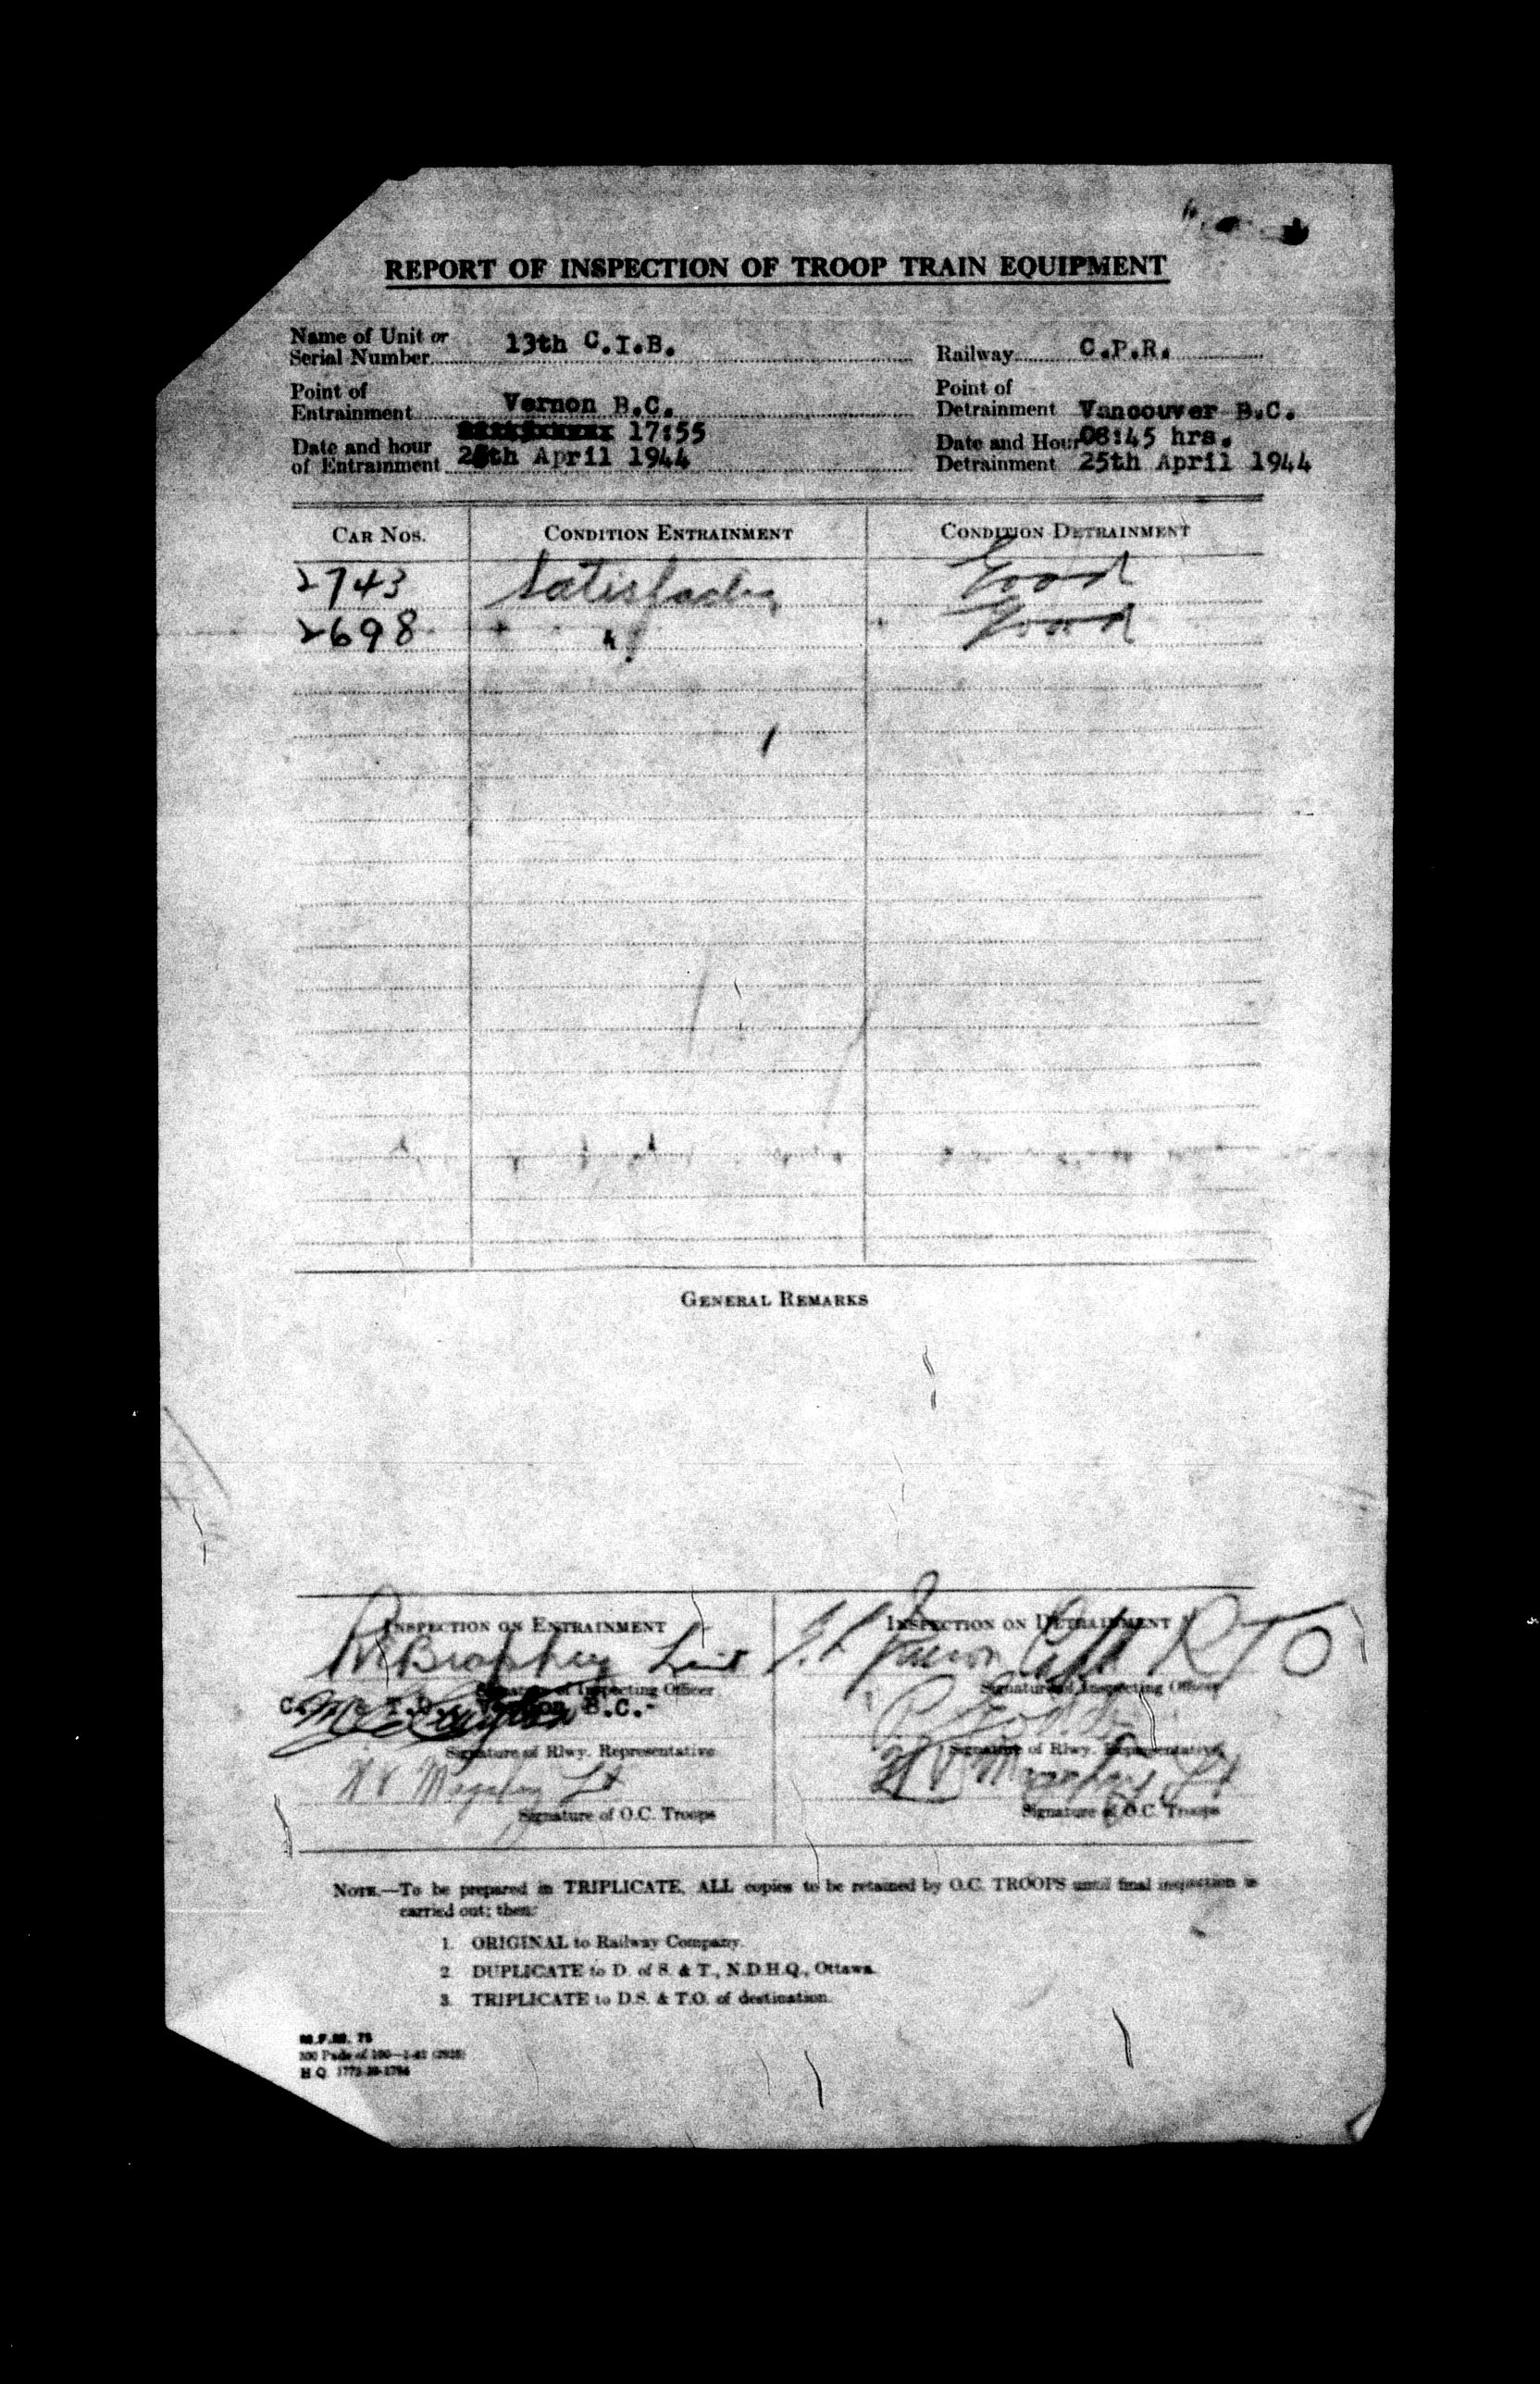 REPORT OF INSPECTION OF TROOP TRAIN EQUIPMENT
Name of Unit or
Serial Number 13th C.I.B.
Railway C.P.R.
Point of
Entrainment Vernon B.C.
Point of
Detrainment Vancouver B.C.
17:55
Date and hour
of Entrainment th April 1944
Date and Hour 08:45 hrs.
Detrainment 25th April 1944
CAR NOS. CONDITION ENTRAINMENT CONDITION DETRAINMENT
2743 Satisfactory Good
2698 " Good
GENERAL REMARKS
INSPECTION ON ENTRAINMENT
Lieut
Signature of Inspecting Officer
Vernon B.C.-
Signature of Rlwy. Representative
H V Lt
Signature of O.C. Troops
INSPECTION ON DETRAINMENT
Capt RTO
Signature of Inspecting Officer
Signature of Rlwy. Representative
H V Lt
Signature of O.C. Troops
NOTE.—To be prepared in TRIPLICATE, ALL copies to be retained by O.C. TROOPS until final inspection is
carried out; then:
1. ORIGINAL to Railway Company.
2. DUPLICATE to D. of S. & T., N.D.H.Q., Ottawa.
3. TRIPLICATE to D.S. & T.O. of destination.
M.F.M. 75
300 Pads of 100
H.Q. 1772-39-1794